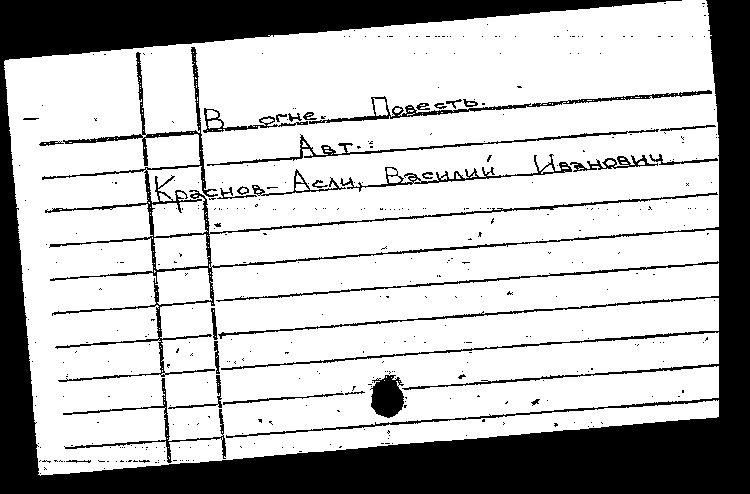 В огне. Повесть.
Авт.:
Краснов-Асли, Василий Иванович